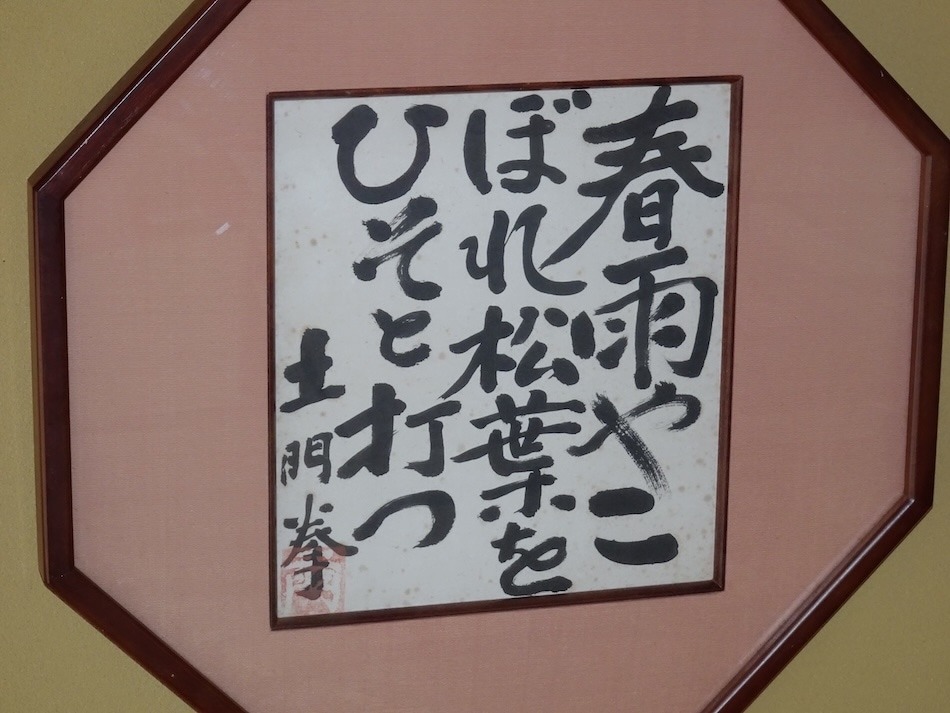 春雨やこ
ぼれ松葉を
ひそと打つ
土門拳